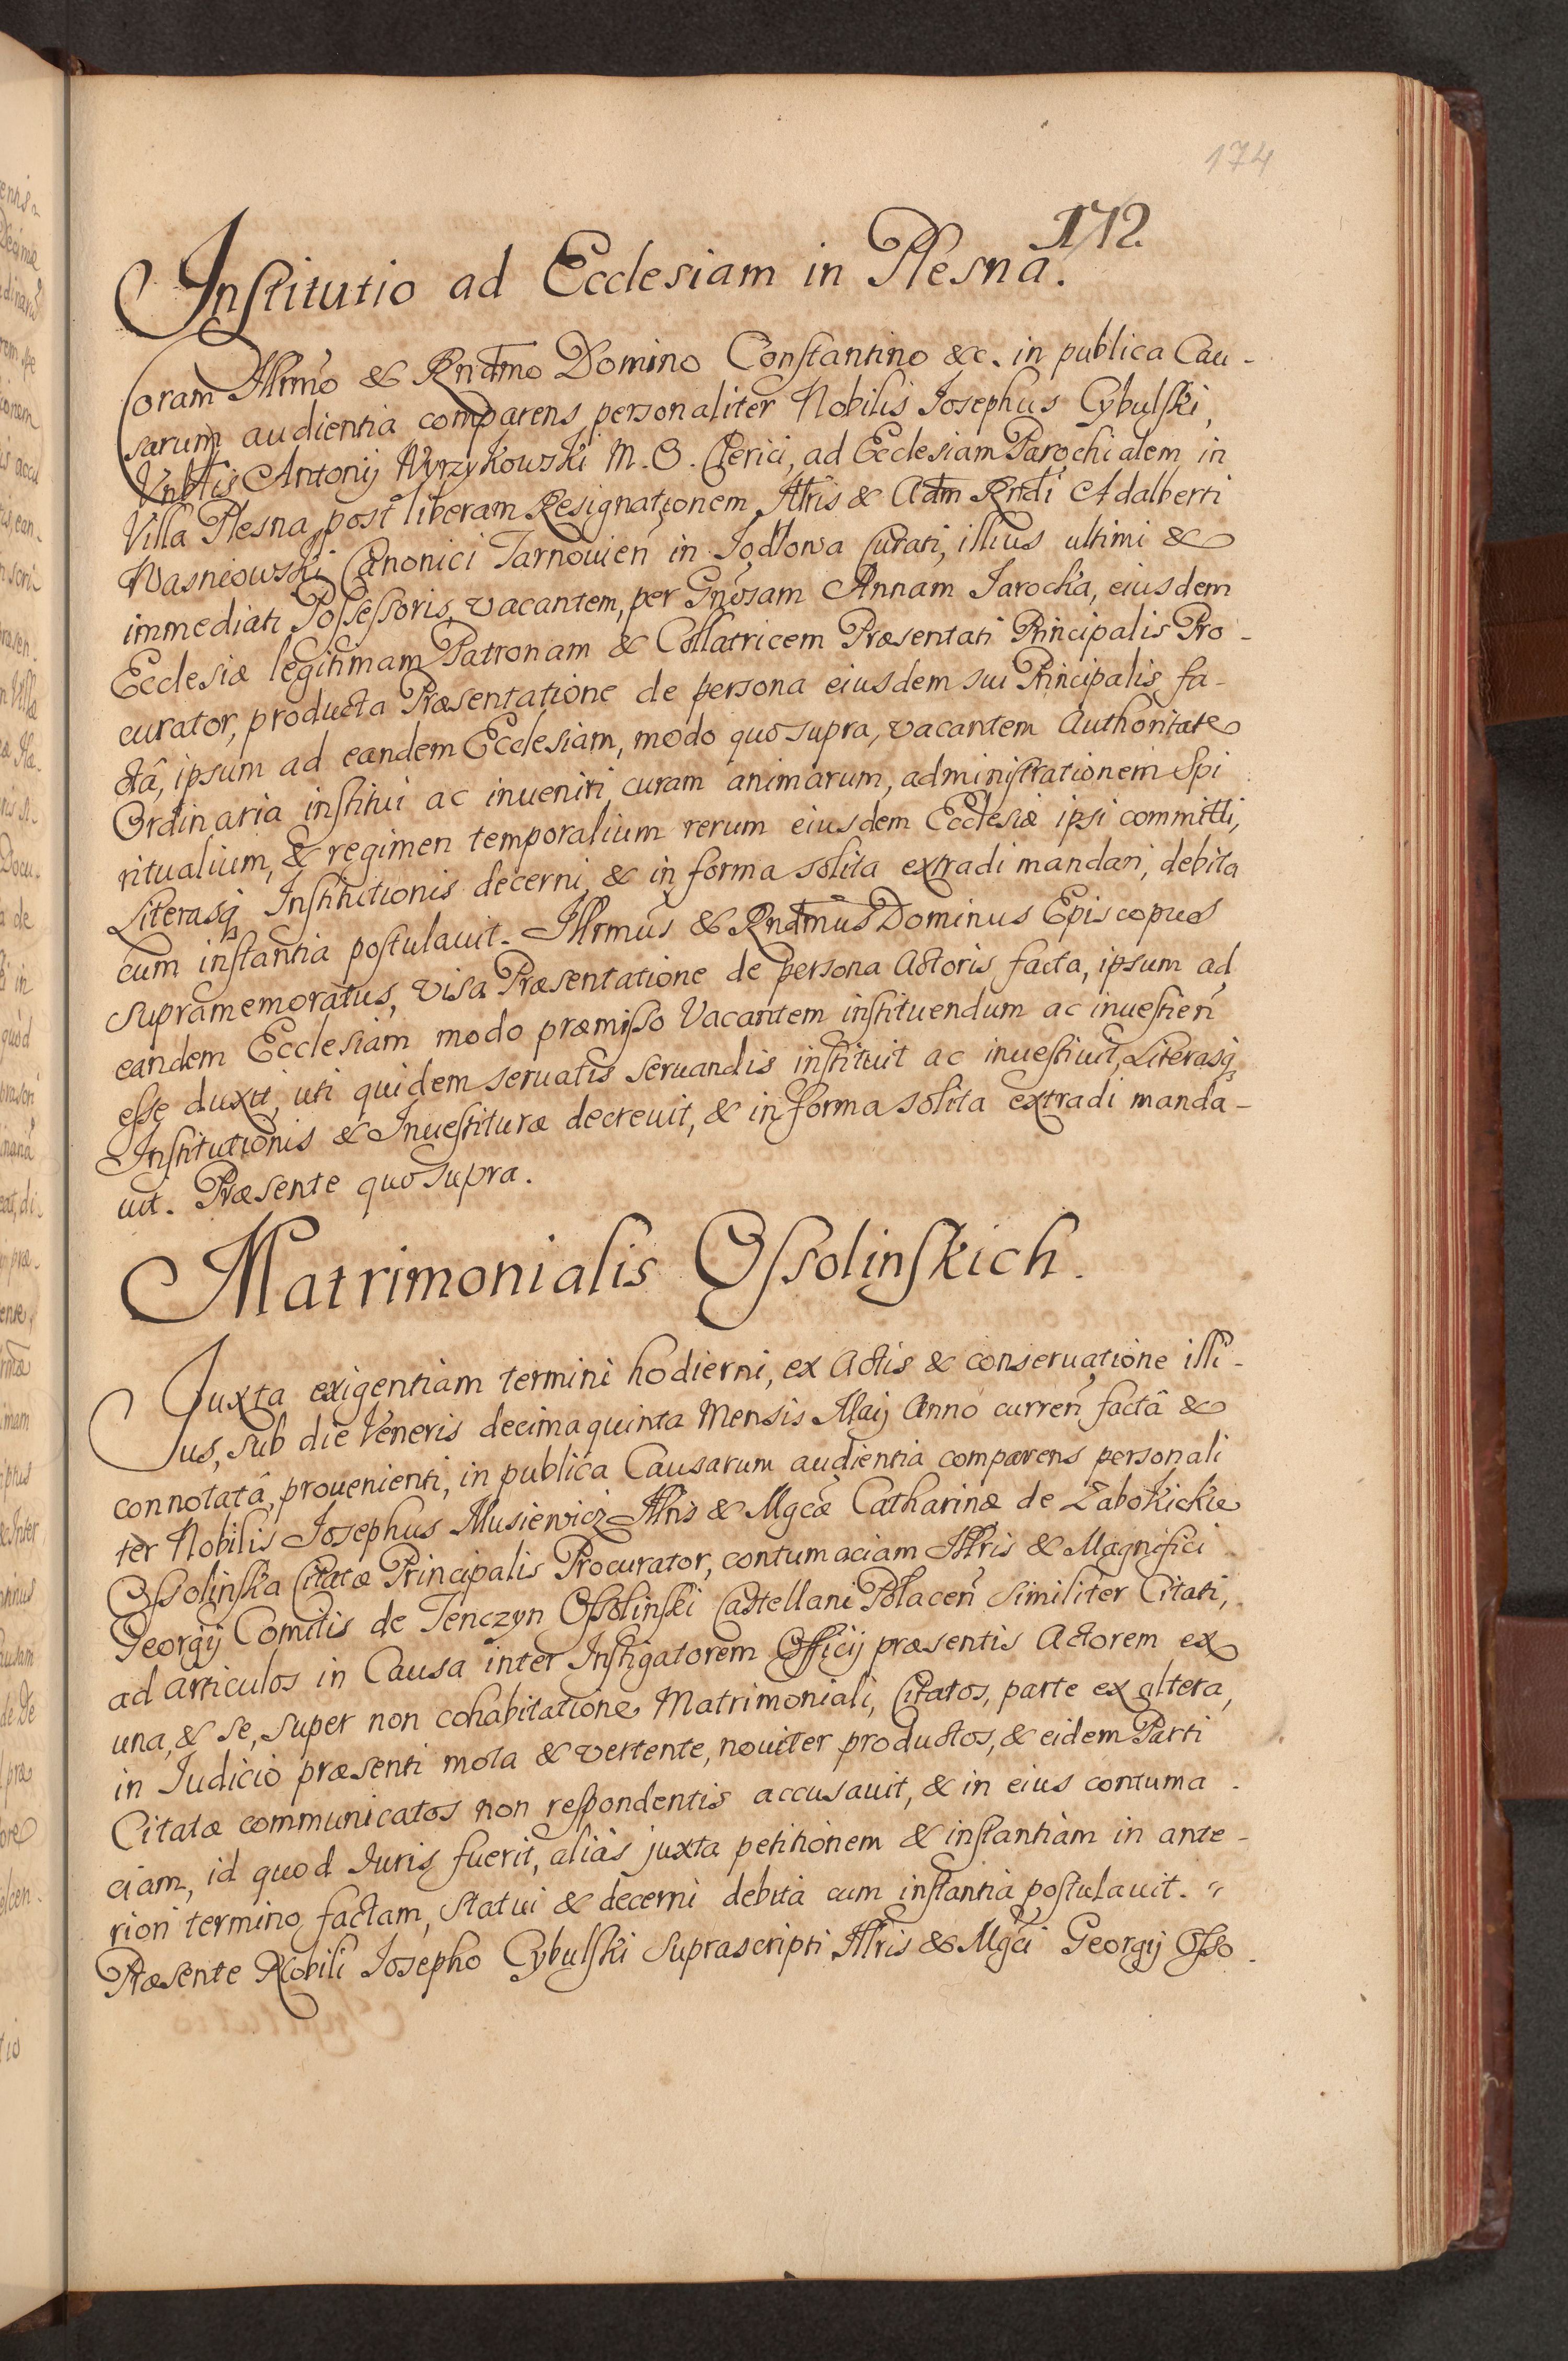 174
172.
Institutio ad Ecclesiam in Plesna.
Coram Illrm̃o & Rnd̃mo Domino Constantino &c. in publica Cau-
sarum audientia comparens personaliter Nobilis Josephus Cybulski,
Antonij Wyrzykowski M. O. Clerici, ad Ecclesiam Parochialem in
Villa Plesna post liberam Resignationem Illris & Adm Rndi Adalberti
Wasniowski Canonici Tarnouien̄ in Jodłowa Curati, illius ultimi &
immediati Possessoris, vacantem, per Gnõsam Annam Jarocka, eiusdem
Ecclesiæ legitimam Patronam & Collatricem Præsentati Principalis Pro-
curator, producta Præsentatione de persona eiusdem sui Principalis fa-
ctâ, ipsum ad eandem Ecclesiam, modo quo supra, vacantem Authoritate
Ordinaria institui ac inueniri, curam animarum, administrationem Spi
ritualium, & regimen temporalium rerum eiusdem Ecclesiæ ipsi committi,
Literasq Institutionis decerni, & in forma solita extradi mandari, debita
cum instantia postulauit. Illrmus & Rndmus Dominus Episcopus
supramemoratus, visa Præsentatione de persona Actoris facta, ipsum ad
eandem Ecclesiam modo præmisso Vacantem instituendum ac inuestien̄
esse duxit, uti quidem seruatis seruandis instituit ac inuestiuit, Literasq
Institutionis & Inuestituræ decreuit, & in forma solita extradi manda-
uit. Præsente quo supra.
Matrimonialis Ossolinskich.
Juxta exigentiam termini hodierni, ex Actis & conseruatione illi-
us, sub die Veneris decima quinta Mensis Maij Anno curren̄ factâ &
connotatâ, prouenienti, in publica Causarum audientia comparens personali
ter Nobilis Josephus Musiewicz Illris & Mgcæ Catharinæ de Zabokickie
Ossolinska Citatæ Principalis Procurator, contumaciam Illris & Magnifici
Georgij Comitis de Tenczyn Ossolinski Castellani Połacen̄ similiter Citati,
ad articulos in Causa inter Instigatorem Officij præsentis Actorem ex
una, & se, super non cohabitatione Matrimoniali, Citatos, parte ex altera,
in Judicio præsenti mota & vertente, nouiter productos, & eidem Parti
Citatæ communicatos non respondentis accusauit, & in eius contuma-
ciam, id quod Iuris fuerit, aliàs juxta petitionem & instantiam in ante-
riori termino factam, statui & decerni debita cum instantia postulauit.
Præsente Nobili Josepho Cybulski Suprascripti Illris & Mgci Georgij Osso-